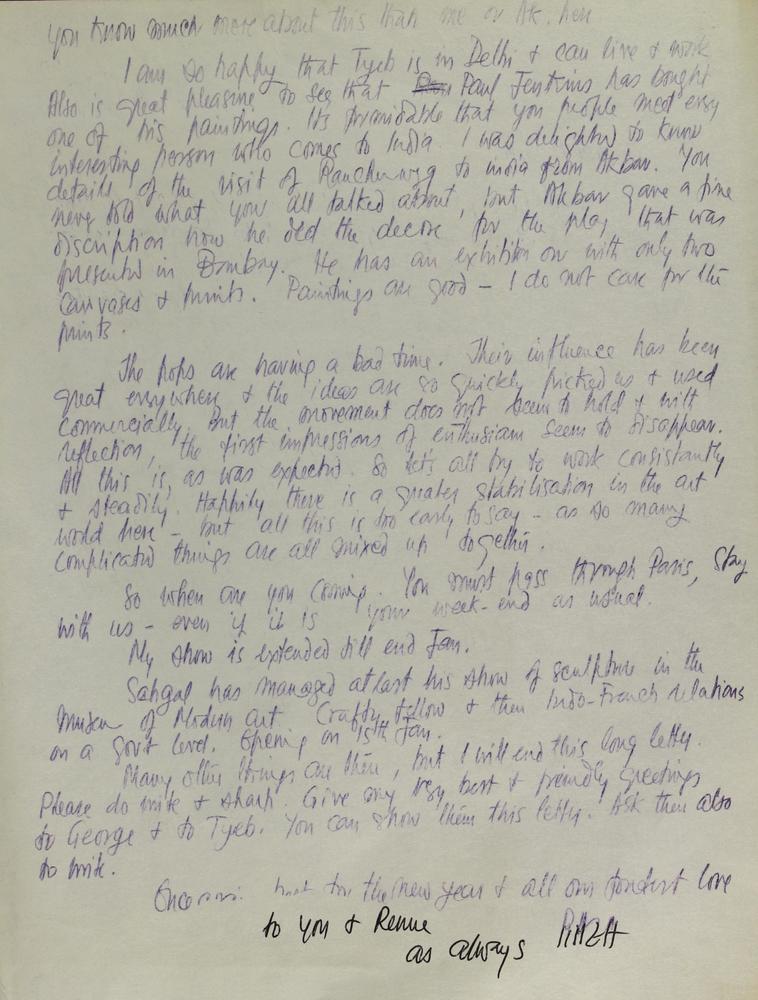 you know much more about this than me or Ak. here
I am so happy that Tyeb is in Delhi & can live & work
Also is great pleasure to see that Paul Jenkins has bought
one of his paintings. Its formidable that you people meet every
interesting person who comes to India. I was delighted to know
details of the visit of Rauchenberg to india from Akbar. You
never told what you all talked about, but Akbar gave a fine
discription how he did the decore for the play that was
presented in Bombay. He has an exhibition on with only two
canvases & prints. Paintings are good – I do not care for the
prints.
The pops are having a bad time. Their influence has been
great everywhere & the ideas are so quickly picked up & used
commercially. But the movement does not seem to hold & with
reflection, the first impressions of enthusiasm seem to disappear.
All this is, as was expected. So let's all try to work consistantly
& steadily. Happily there is a greater stabilisation in the art
world here – but all this is too early to say – as so many
complicated things are all mixed up together.
So when are you coming. You must pass through Paris, stay
with us – even if it is your week-end as usual.
My show is extended till end Jan.
Sehgal has managed atlast his show of sculpture in the
Museum of Modern art. Crafty fellow & then Indo-French relations
on a Govt level. Opening on 15th Jan.
Many other things are there, but I will end this long letter.
Please do write & sharp. Give my very best & friendly greetings
to George & to Tyeb. You can show them this letter. Ask them also
to write.
Once more best for the new year & all our fondest love
to you & Renu
as always